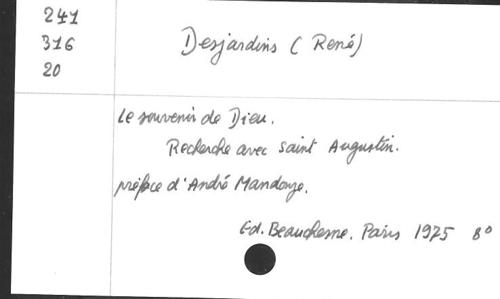 241
316
20
Desjardins (René)
Le souvenir de Dieu.
Recherche avec saint Augustin.
préface d'André Mandouze.
Ed. Beauchesne. Paris 1975 8°